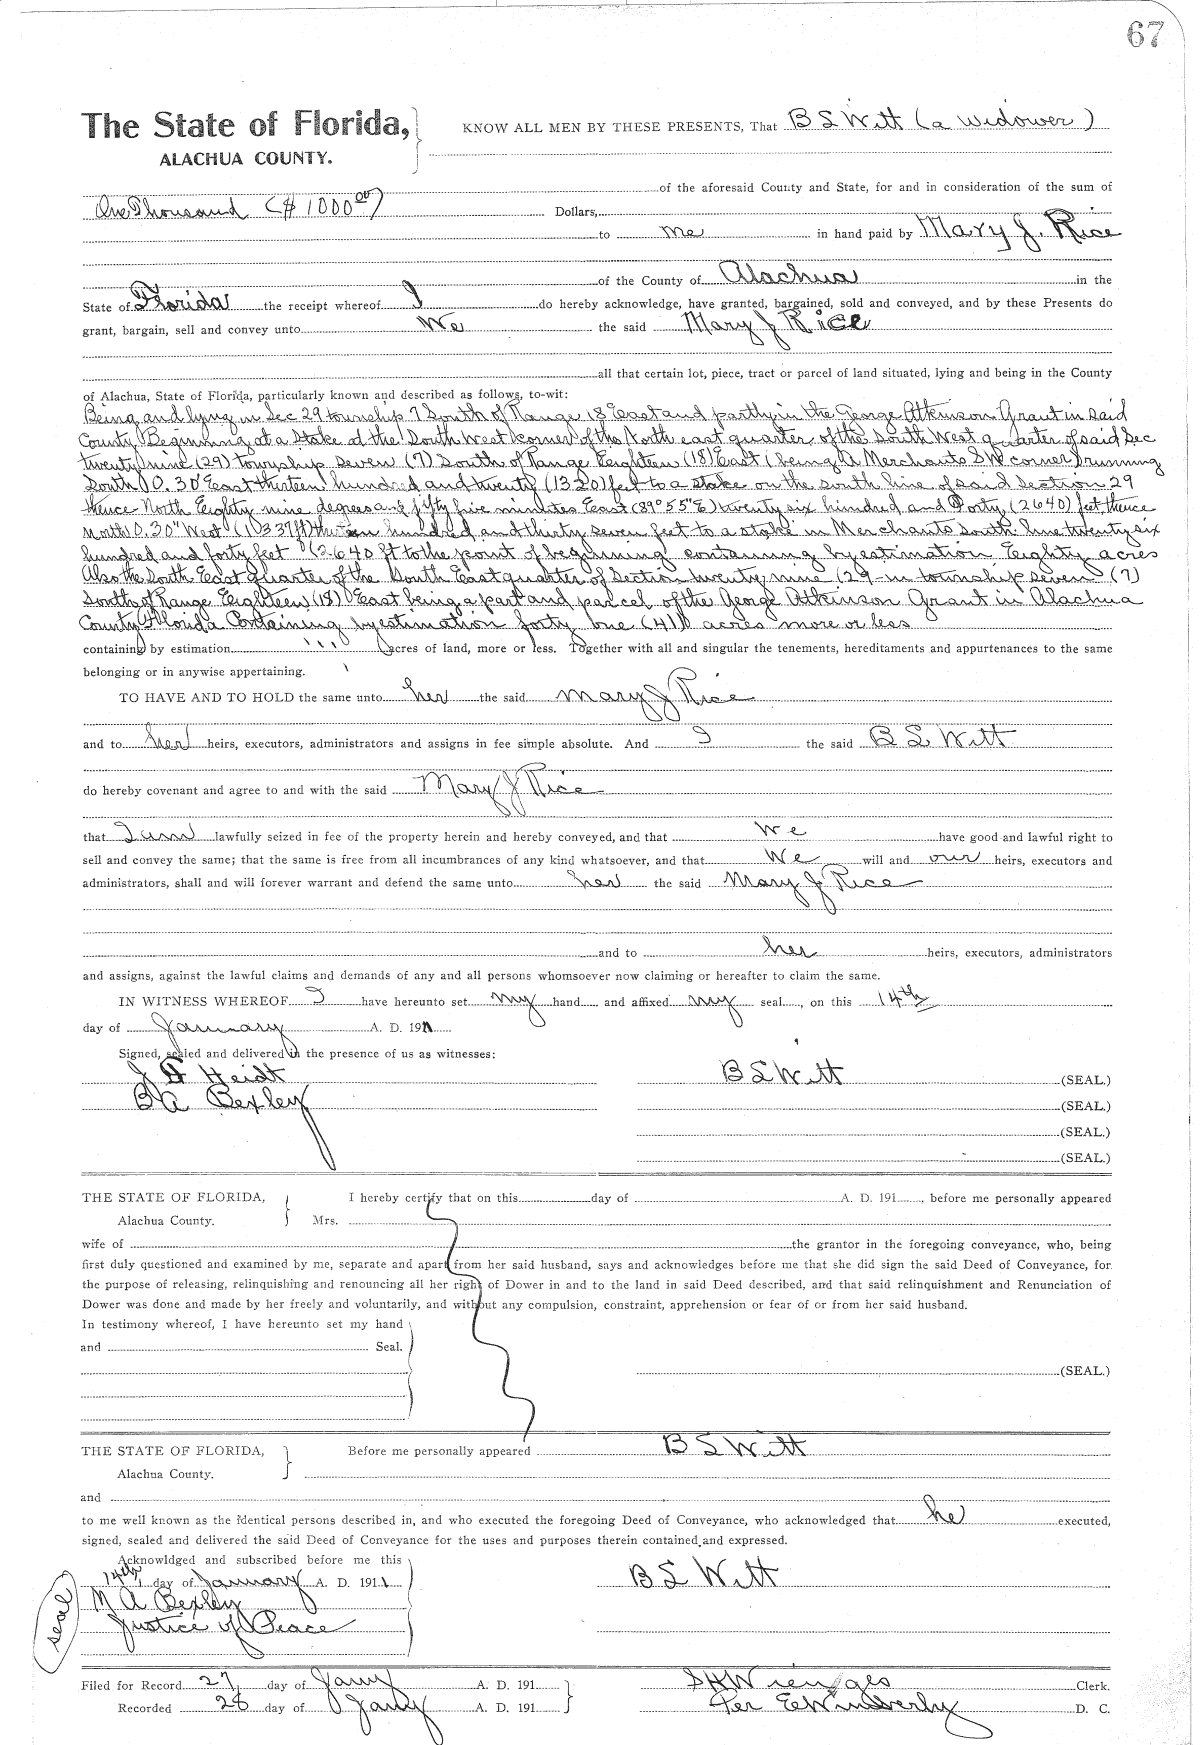 67
The State of Florida, KNOW ALL MEN BY THESE PRESENTS, That B S Witt (a widower)
ALACHUA COUNTY.
of the aforesaid County and State, for and in consideration of the sum of
One Thousand ($1000.00) Dollars,
to me in hand paid by Mary J. Rice
of the County of Alachua in the
State of Florida the receipt whereof I do hereby acknowledge, have granted, bargained, sold and conveyed, and by these Presents do
grant, bargain, sell and convey unto We the said Mary J Rice
all that certain lot, piece, tract or parcel of land situated, lying and being in the County
of Alachua, State of Florida, particularly known and described as follows, to-wit:
Being and lying in Sec 29 township 7 South of Range 18 East and partly in the George Atkinson Grant in said
County Beginning at a Stake at the South West corner of the North east quarter of the South West quarter of said Sec
twenty nine (29) township seven (7) South of Range Eighteen (18) East (being A Merchants SW corner) running
South 0.30' East thirteen hundred and twenty (1320) feet to a stake on the south line of said Section 29
thence North Eighty nine degrees and fifty five minutes East (89° 55" E) twenty six hundred and Forty (2640) feet thence
North 0.30" West (1337 ft) hundred and thirty seven feet to a stake in Merchants south line twenty six
hundred and forty feet (2640 ft to the point of beginning containing by estimation Eighty acres
Also the South East quarter of the South East quarter of Section twenty nine (29 in township seven (7)
South of Range Eighteen (18) East being a part and parcel of the George Atkinson Grant in Alachua
County Florida Containing by estimation forty one (41) acres more or less
containing by estimation acres of land, more or less. Together with all and singular the tenements, hereditaments and appurtenances to the same
belonging or in anywise appertaining.
TO HAVE AND TO HOLD the same unto her the said Mary J Rice
and to her heirs, executors, administrators and assigns in fee simple absolute. And I the said B S Witt
do hereby covenant and agree to and with the said Mary J Rice
that I am lawfully seized in fee of the property herein and hereby conveyed, and that We have good and lawful right to
sell and convey the same; that the same is free from all incumbrances of any kind whatsoever, and that We will and our heirs, executors and
administrators, shall and will forever warrant and defend the same unto her the said Mary J Rice
and to her heirs, executors, administrators
and assigns, against the lawful claims and demands of any and all persons whomsoever now claiming or hereafter to claim the same.
IN WITNESS WHEREOF I have hereunto set my hand and affixed my seal, on this 14th
day of January A. D. 191
Signed, sealed and delivered in the presence of us as witnesses:
J Heidt B S Witt (SEAL.)
B A Bexley (SEAL.)
(SEAL.)
(SEAL.)
THE STATE OF FLORIDA, I hereby certify that on this day of A. D. 191, before me personally appeared
Alachua County. Mrs.
wife of the grantor in the foregoing conveyance, who, being
first duly questioned and examined by me, separate and apart from her said husband, says and acknowledges before me that she did sign the said Deed of Conveyance, for
the purpose of releasing, relinquishing and renouncing all her right of Dower in and to the land in said Deed described, and that said relinquishment and Renunciation of
Dower was done and made by her freely and voluntarily, and without any compulsion, constraint, apprehension or fear of or from her said husband.
In testimony whereof, I have hereunto set my hand
and Seal.
(SEAL.)
THE STATE OF FLORIDA, Before me personally appeared B S Witt
Alachua County.
and
to me well known as the identical persons described in, and who executed the foregoing Deed of Conveyance, who acknowledged that he executed,
signed, sealed and delivered the said Deed of Conveyance for the uses and purposes therein contained and expressed.
Acknowldged and subscribed before me this
14th day of January A. D. 1911 B S Witt
M A Bexley
Justice of Peace
seal
Filed for Record 27 day of Jany A. D. 191 S H Wienges Clerk.
Recorded 28 day of Jany A. D. 191 Per E Wimberly D. C.